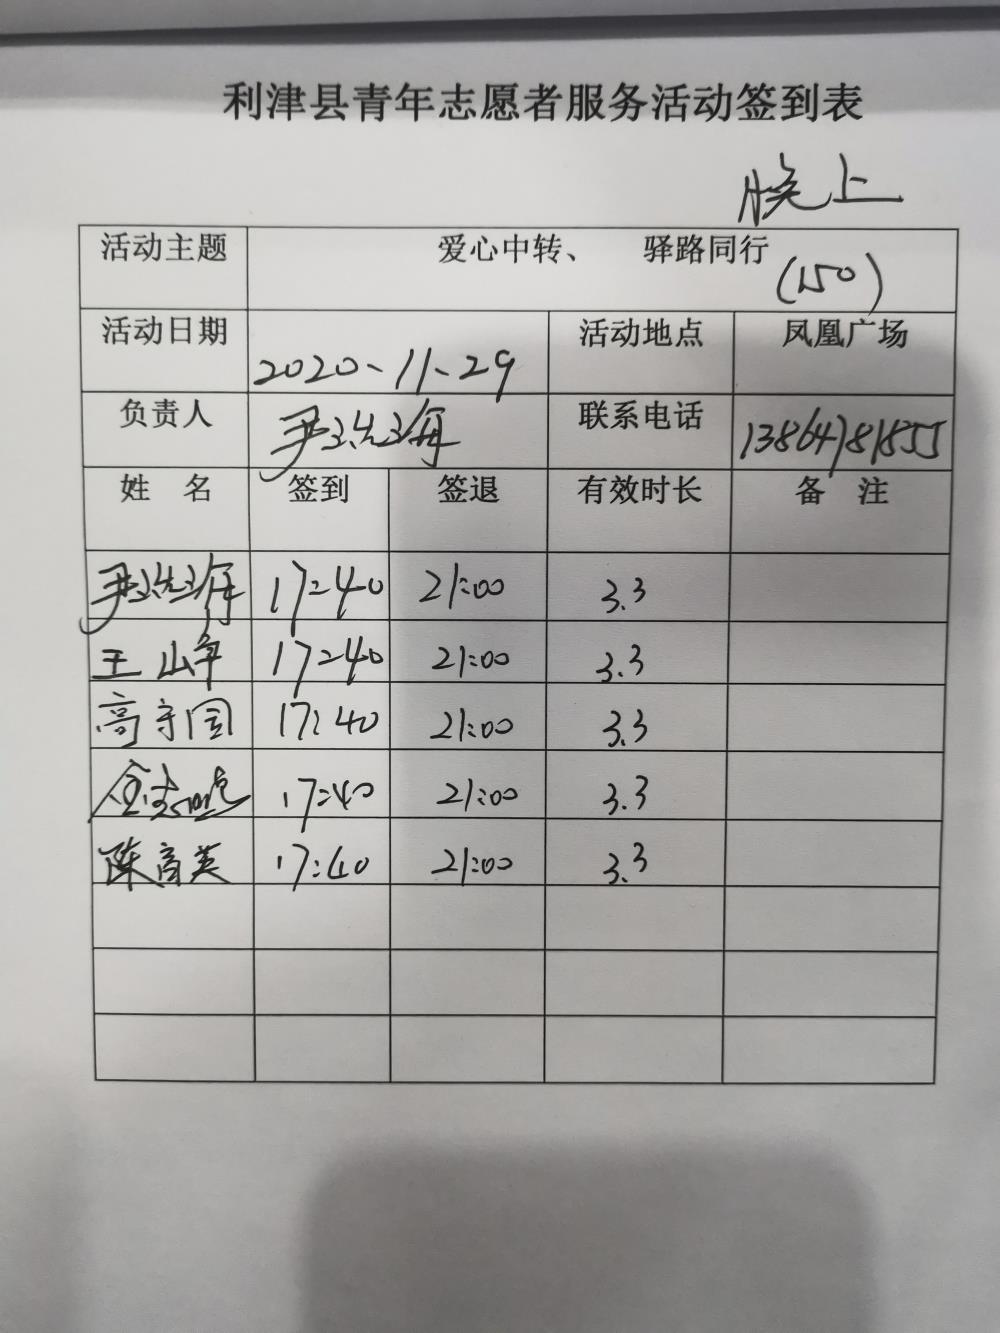 利津县青年志愿者服务活动签到表
晚上
活动主题 爱心中转、 驿路同行 (150)
活动日期 2020-11-29 活动地点 凤凰广场
负责人 联系电话 13864781855
姓 名 签到 签退 有效时长 备 注
17:40 21:00 3.3
王山军 17:40 21:00 3.3
高守国 17:40 21:00 3.3
17:40 21:00 3.3
陈富英 17:40 21:00 3.3